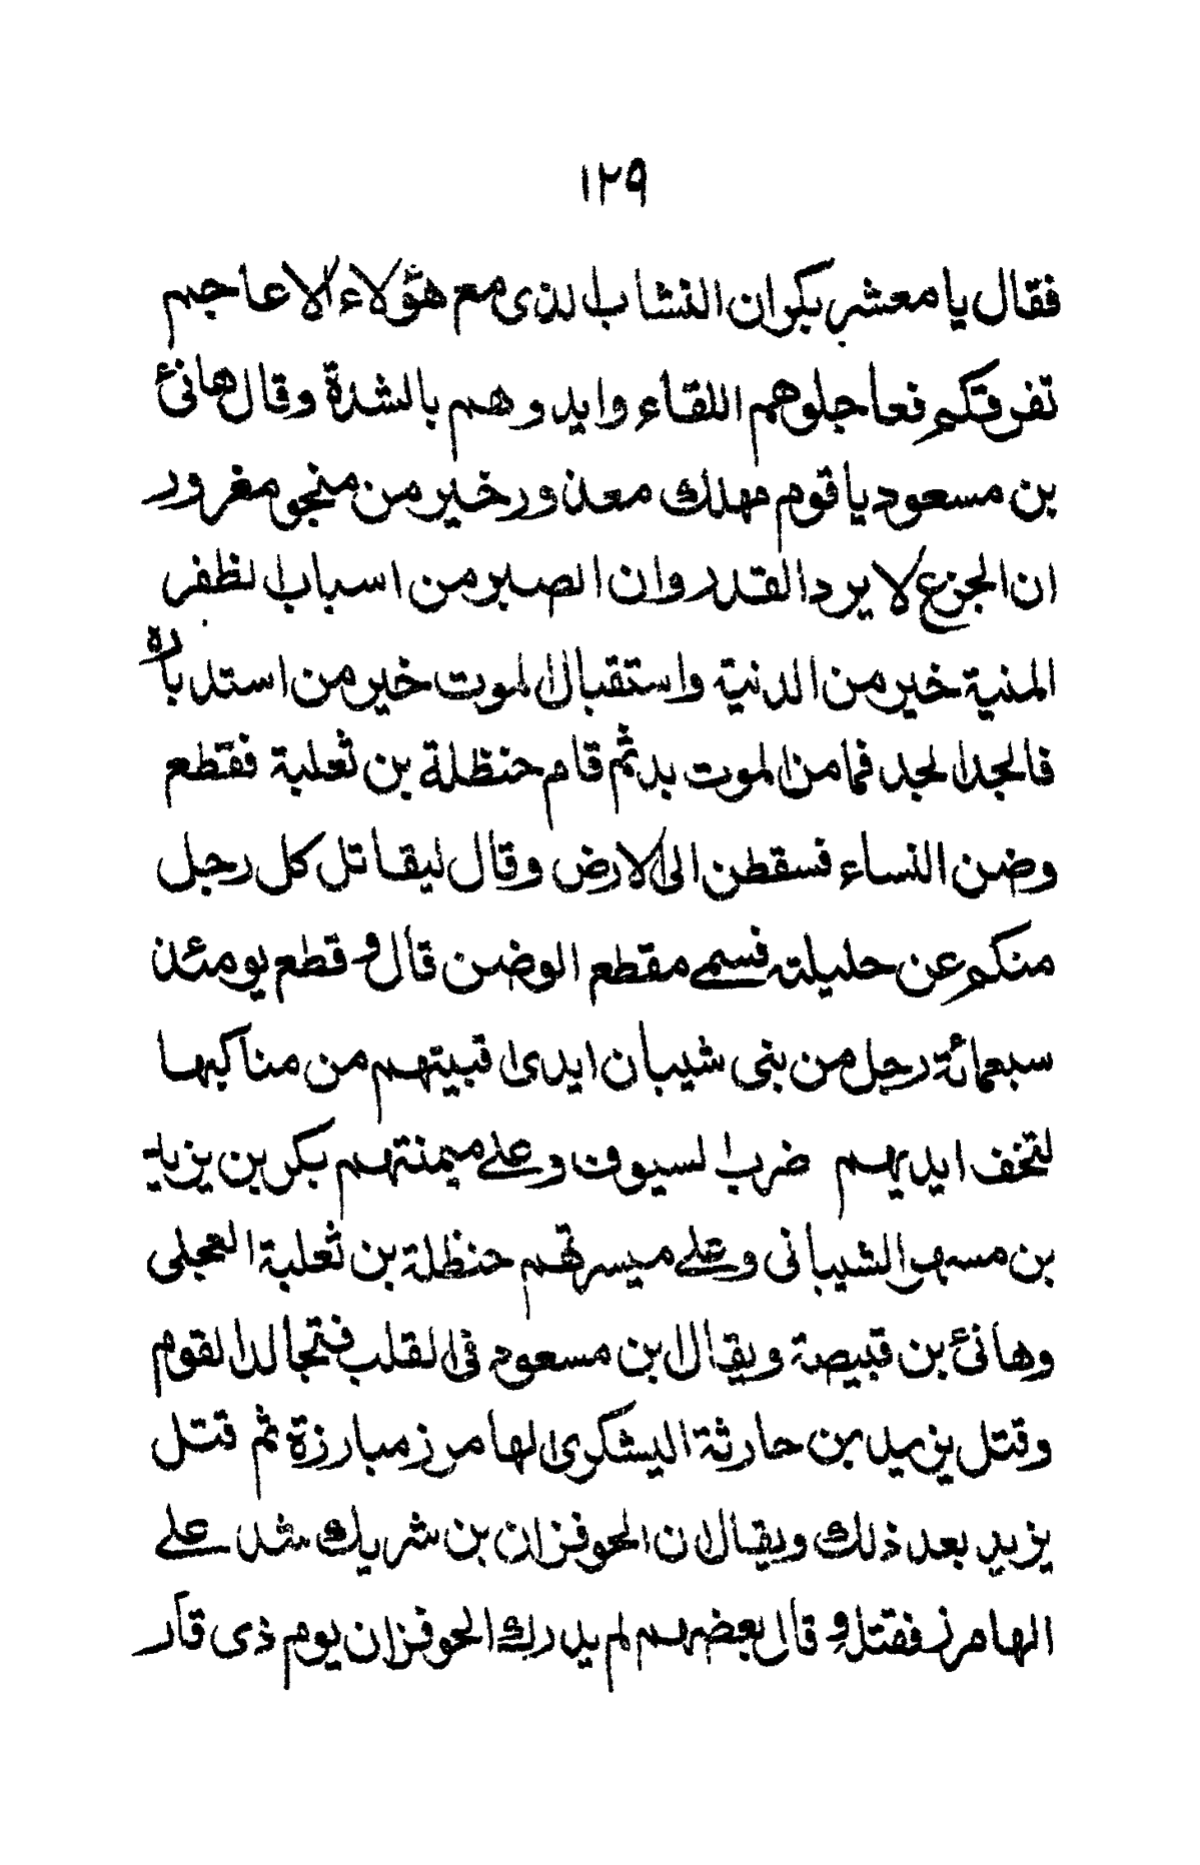 ١٢٩
فقال يا معشر بكر ان النشاب الذى مع هؤلاء الاعاجم
تفرقكم فعاجلوهم اللقاء وايدوهم بالشدة وقال هانئ
بن مسعود يا قوم مهلك معذور خير من منجو مغرور
ان الجزع لا يرد القدر وان الصبر من اسباب الظفر
المنية خير من الدنية واستقبال الموت خير من استدباره
فالجد الجد فما من الموت بد ثم قام حنظلة بن ثعلبة فقطع
وضن النساء فسقطن الى الارض وقال ليقاتل كل رجل
منكم عن حليلته فسمى مقطع الوضن قال و قطع يومئذ
سبعمائة رجل من بنى شيبان ايدى اقبيتهم من مناكبها
لتخف ايديهم ضرب السيوف وعلى ميمنتهم بكر بن يزيد
بن مسهر الشيبانى وعلى ميسرتهم حنظلة بن ثعلبة العجلى
وهانئ بن قبيصة ويقال ابن مسعود فى القلب فتجالد القوم
وقتل يزيد بن حارثة اليشكرى الهامرز مبارزة ثم قتل
يزيد بعد ذلك ويقال ان الحوفزان بن شريك شد على
الهامرز فقتله و قال بعضهم لم يدرك الحوفزان يوم ذى قار